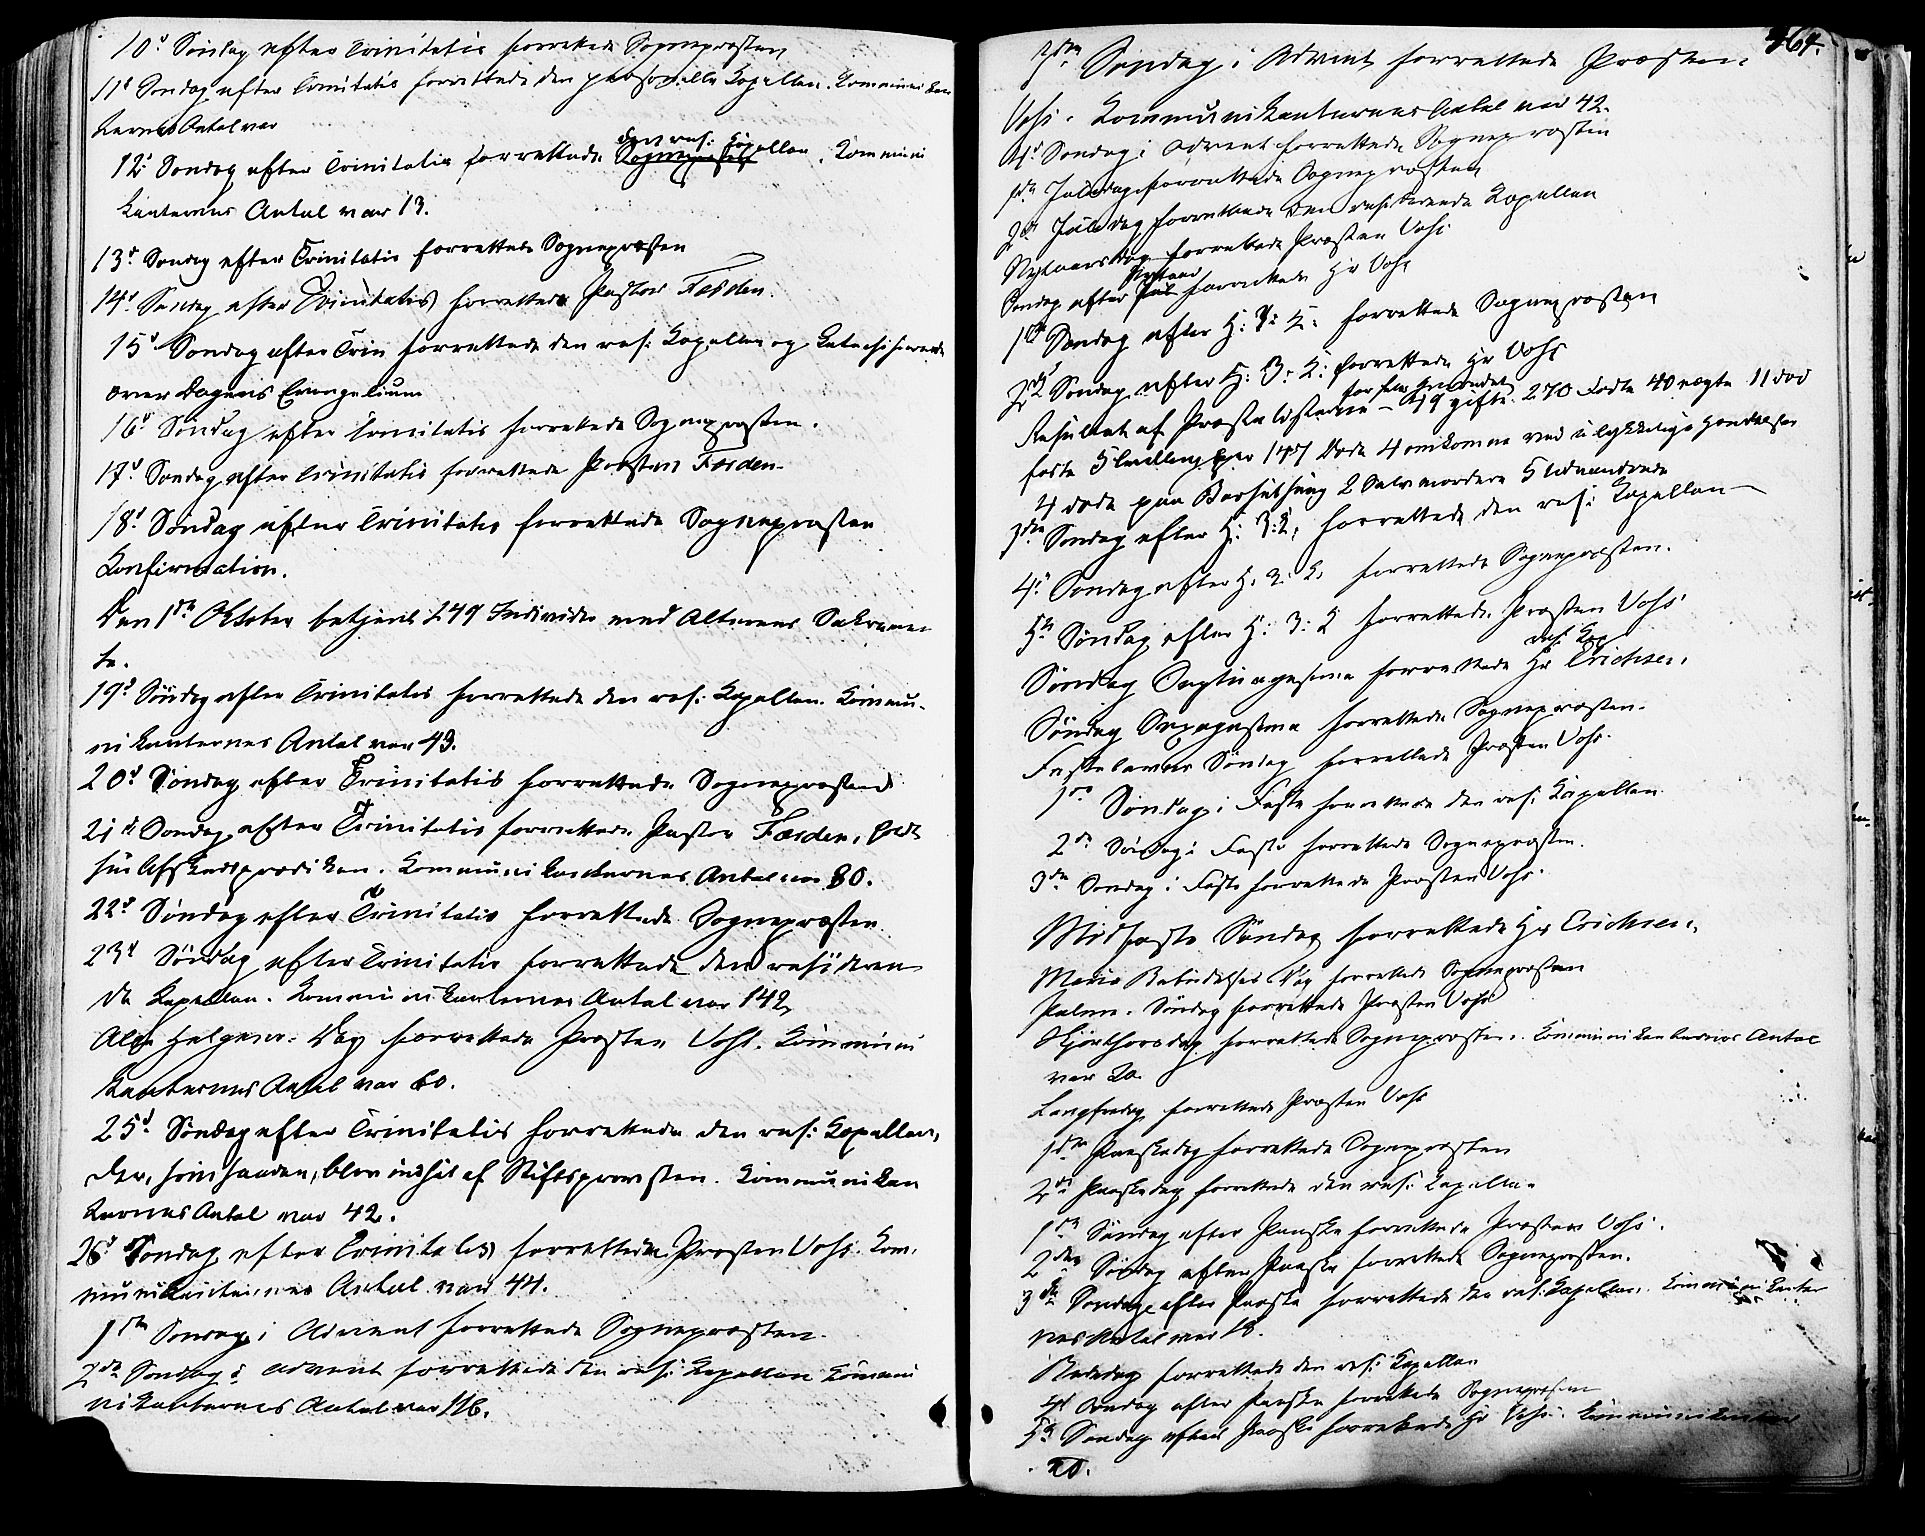 10d Søndag efter Trinitatis forrettede Sognepræsten
11t Søndag efter Trinitatis forrettede den personelle Kapellan. Kommunikan
ternes Antal var
12t Søndag efter Trinitatis forrettede den res: Kapellan. Kommuni
kanternes Antal var 13.
13d Søndag efter Trinitatis forrettede Sognepræsten
14d Søndag efter Trinitatis forrettede Pastor Færden.
15d Søndag efter Trin forrettede den res: Kapellan og Katechiserede
over Dagens Evangelium
16d Søndag efter Trinitatis forrettede Sognepræsten.
17d Søndag efter Trinitatis forrettede Præsten Færden.
18d Søndag efter Trinitatis forrettede Sognepræsten
Konfirmation.
Den 1ste Oktober betjent 249 Individer med Alterens Sakramen
te.
19d Søndag efter Trinitatis forrettede den res: Kapellan. Kommu-
nikanternes Antal var 43.
20d Søndag efter Trinitatis forrettede Sognepræsten
21d Søndag efter Trinitatis forrettede Pastor Færden, holdt
sin Afskedsprædiken. Kommunikanternes Antal var 80.
22d Søndag efter Trinitatis forrettede Sognepræsten
23d Søndag efter Trinitatis forrettede den residen-
de Kapellan. Kommunikanternes Antal var 142
Alle Helgens-Dag forrettede Præsten Vohs. Kommuni
kanternes Antal var 60.
25d Søndag efter Trinitatis forrettede den res: Kapellan,
der, blev indsat af Stiftsprovsten. Kommunikan
ternes Antal var 42.
26d Søndag efter Trinitatis forrettede Præsten Vohs. Kom-
munikanternes Antal var 44.
1ste Søndag i Advent forrettede Sognepræsten.
2den Søndag i Advent forrettede den res: Kapellan Kommu
nikanternes Antal var 116.
464.
3die Søndag i Advent forrettede Præsten
Vohs. Kommunikanternes Antal var 42.
4d Søndag i Advent forrettede Sognepræsten
1ste Juledag forrettede Sognepræsten
2den Juledag forrettede den residerende Kapellan
Nytaarsdag forrettede Præsten Vohs
Søndag efter Nytaar forrettede Hr Vohs
1ste Søndag efter H: 3: K: forrettede Sognepræsten
2den Søndag efter H: 3: K: forrettede Hr Vohs
Resultat af Præstelisterne 49 gifte. 270 Fødte 40 uægte 11 død
fødte 5 Tvilling par 147 Døde 4 omkomne ved ulykkelige Hændelser
4 døde paa Barselseng 2 Selvmordere 5 Udvandrede
3die Søndag efter H: 3: K: forrettede den res: Kapellan
4d Søndag efter H: 3: K: forrettede Sognepræsten.
5te Søndag efter H: 3: K forrettede Præsten Vohs
Søndag Septuagesima forrettede res: Kap Hr Erichsen.
Søndag Sexagesima forrettede Sognepræsten.
Fastelavns Søndag forrettede Præsten Vohs.
1ste Søndag i Faste forrettede den res: Kapellan
2den Søndag i Faste forrettede Sognepræsten.
3die Søndag i Faste forrettede Præsten Vohs.
Midfaste Søndag forrettede Hr Erichsen.
Maria Bebudelses Dag forrettede Sognepræsten
Palme-Søndag forrettede Præsten Vohs
Skjærthorsdag forrettede Sognepræsten. Kommunikanternes Antal
var 20.
Langfredag forrettede Præsten Vohs
1ste Paaskedag forrettede Sognepræsten
2den Paaskedag forrettede den res: Kapellan
1ste Søndag efter Paaske forrettede Præsten Vohs.
2den Søndag efter Paaske forrettede Sognepræsten.
3die Søndag efter Paaske forrettede den res: Kapellan. Kommunikanter
nes Antal var 18.
Bededag forrettede den res: Kapellan
4d Søndag efter Paaske forrettede Sognepræsten
5te Søndag efter Paaske forrettede Hr Vohs. Kommunikanternes
20.